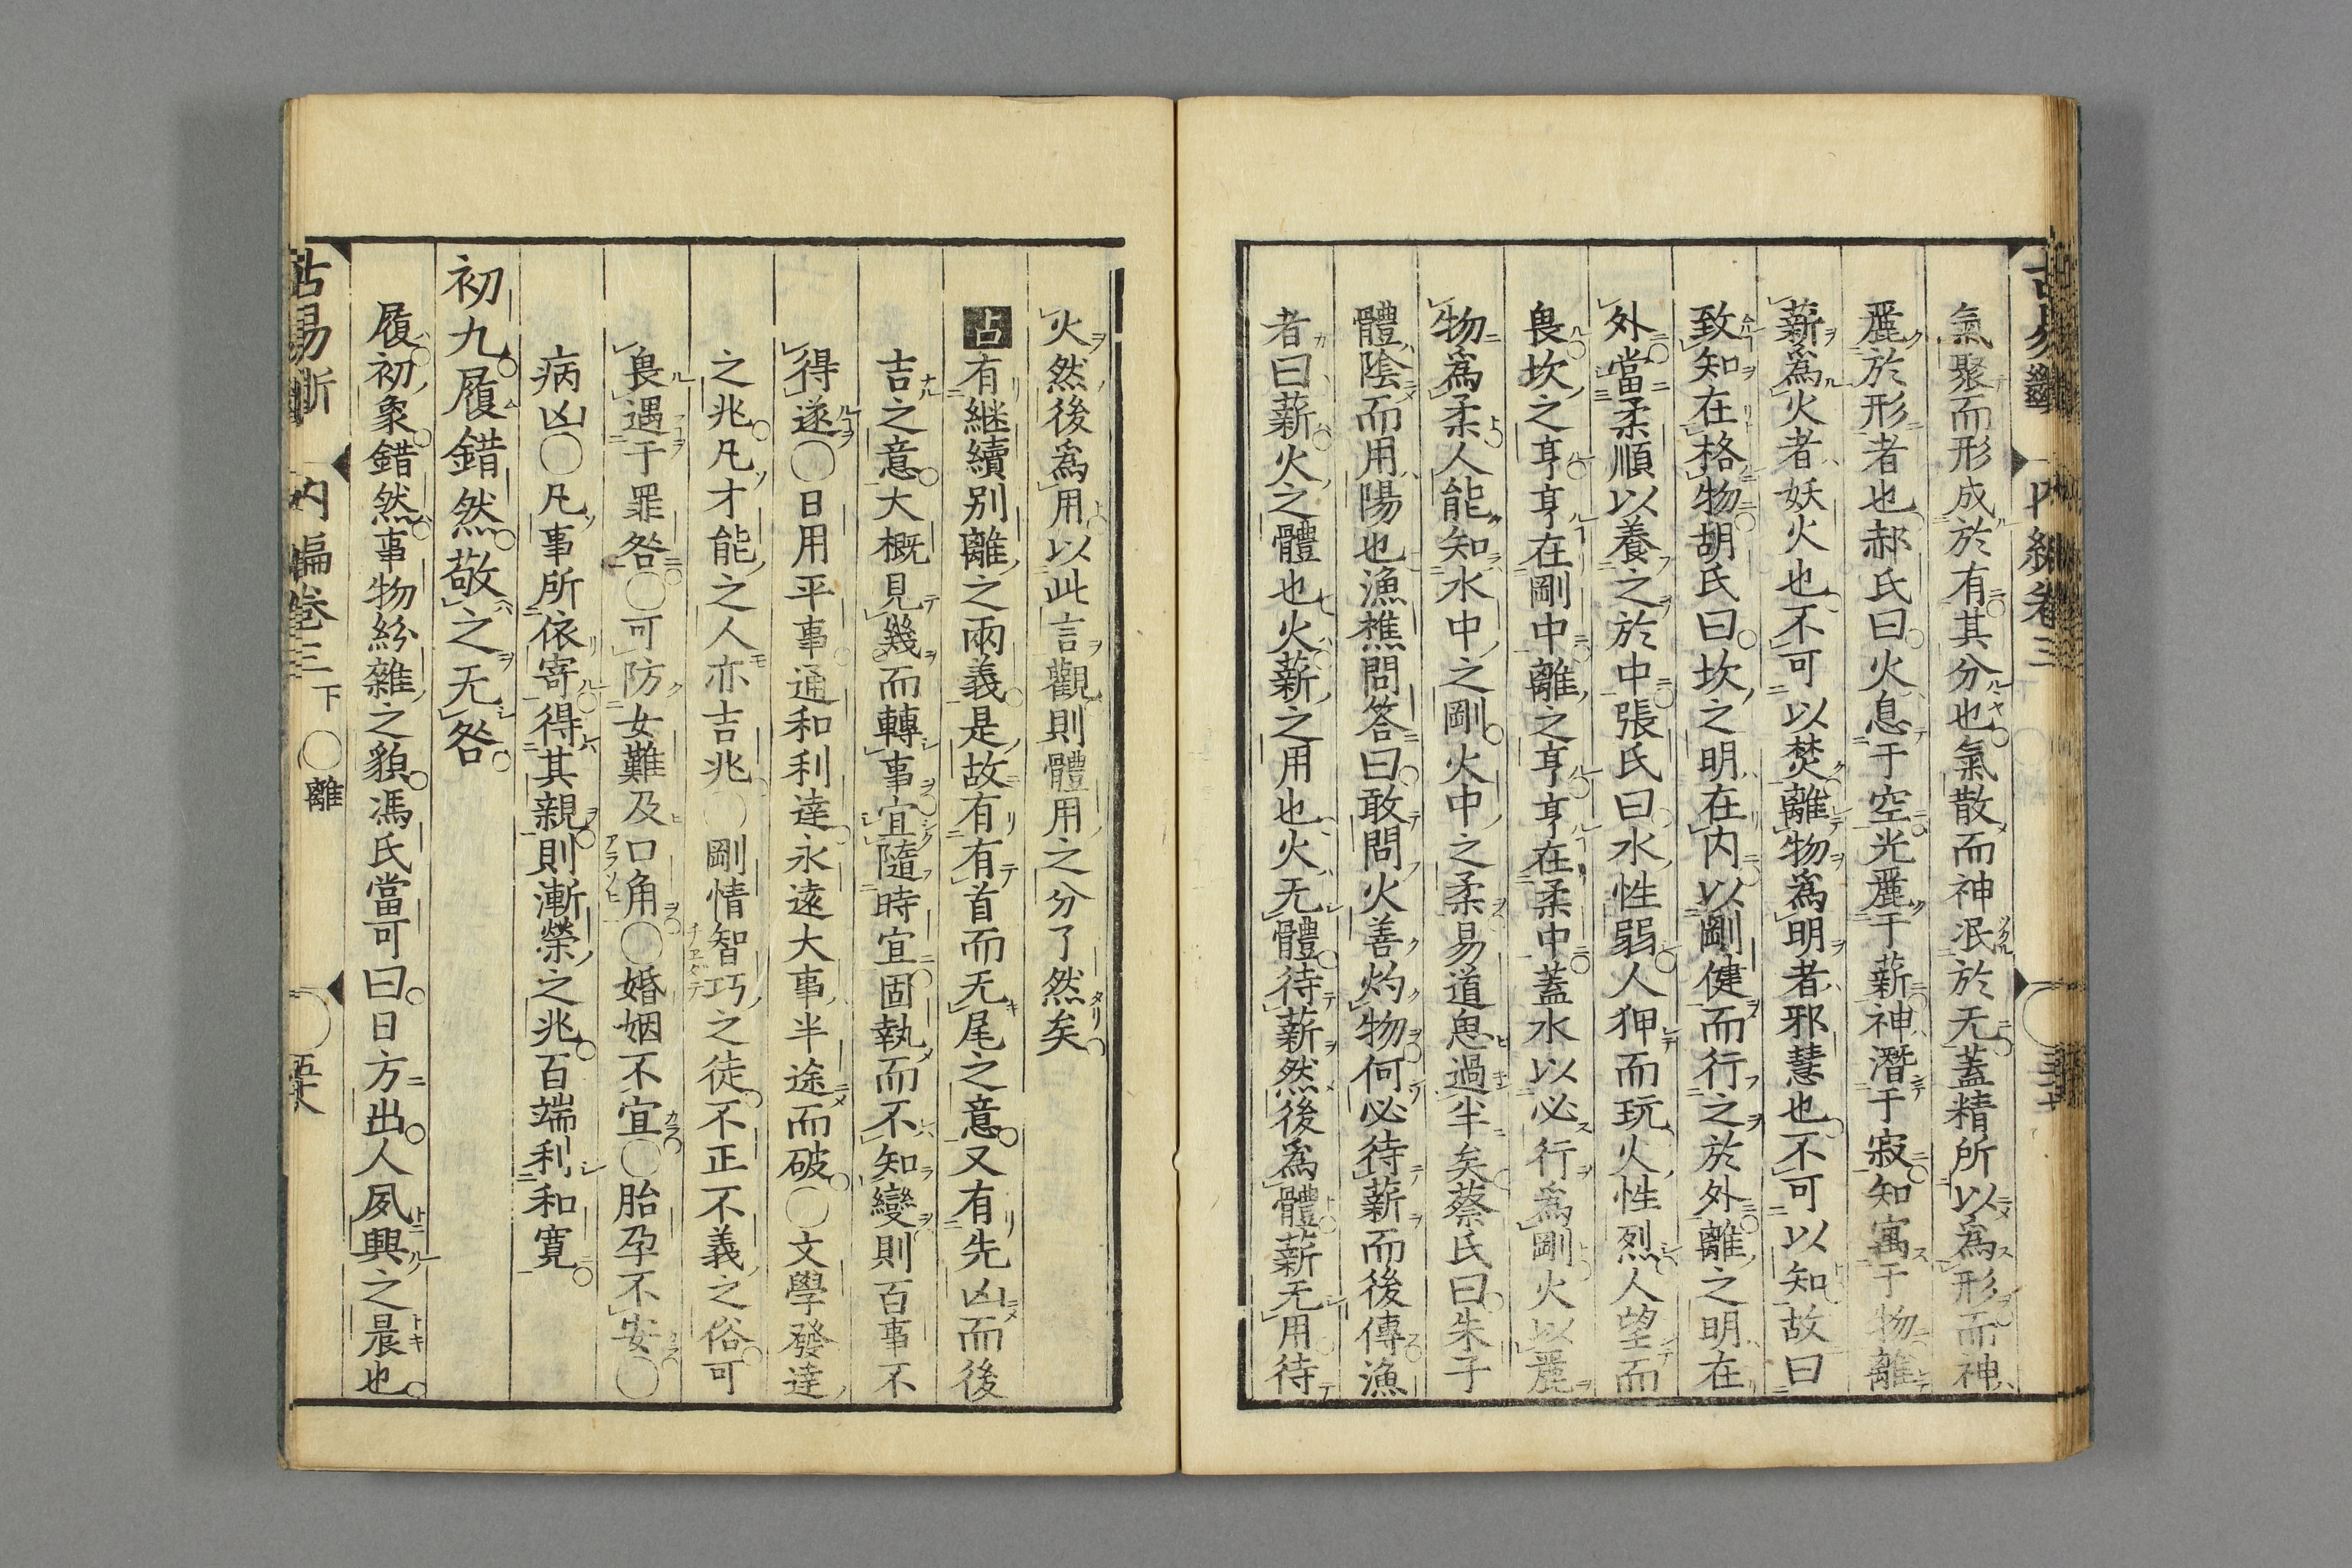 氣聚而形成於有其分也氣散而神泯於无蓋精所以爲形而神
麗於形者也郝氏曰火息于空光麗于薪神潛于寂知寓于物離
薪爲火者妖火也不可以焚離物爲明者邪慧也不可以知故曰
致知在格物胡氏曰坎之明在内以剛健而行之於外離之明在
外當柔順以養之於中張氏曰水性弱人狎而玩火性烈人望而
畏坎之亨亨在剛中離之亨亨在柔中蓋水以必行爲剛火以麗
物爲柔人能知水中之剛火中之柔易道思過半矣蔡氏曰朱子
體陰而用陽也漁樵問答曰敢問火善灼物何必待薪而後傳漁
者曰薪火之體也火薪之用也火无體待薪然後爲體薪无用待
火然後爲用以此言觀則體用之分了然矣
占有継續別離之兩義是故有有首而无尾之意又有先凶而後
吉之意大概見幾而轉事宜隨時宜固執而不知變則百事不
得遂○日用平事通和利達永遠大事半途而破○文學發達
之兆凡才能之人亦吉兆○剛情智巧之徒不正不義之俗可
畏遇于罪咎○可防女難及口角○婚姻不宜○胎孕不安○
病凶○凡事所依寄得其親則漸榮之兆百端利和寛
初九履錯然敬之无咎
履初象錯然事物紛雜之貌馮氏當可曰日方出人夙興之晨也
古易斷 内編卷三下 ○離 五十六